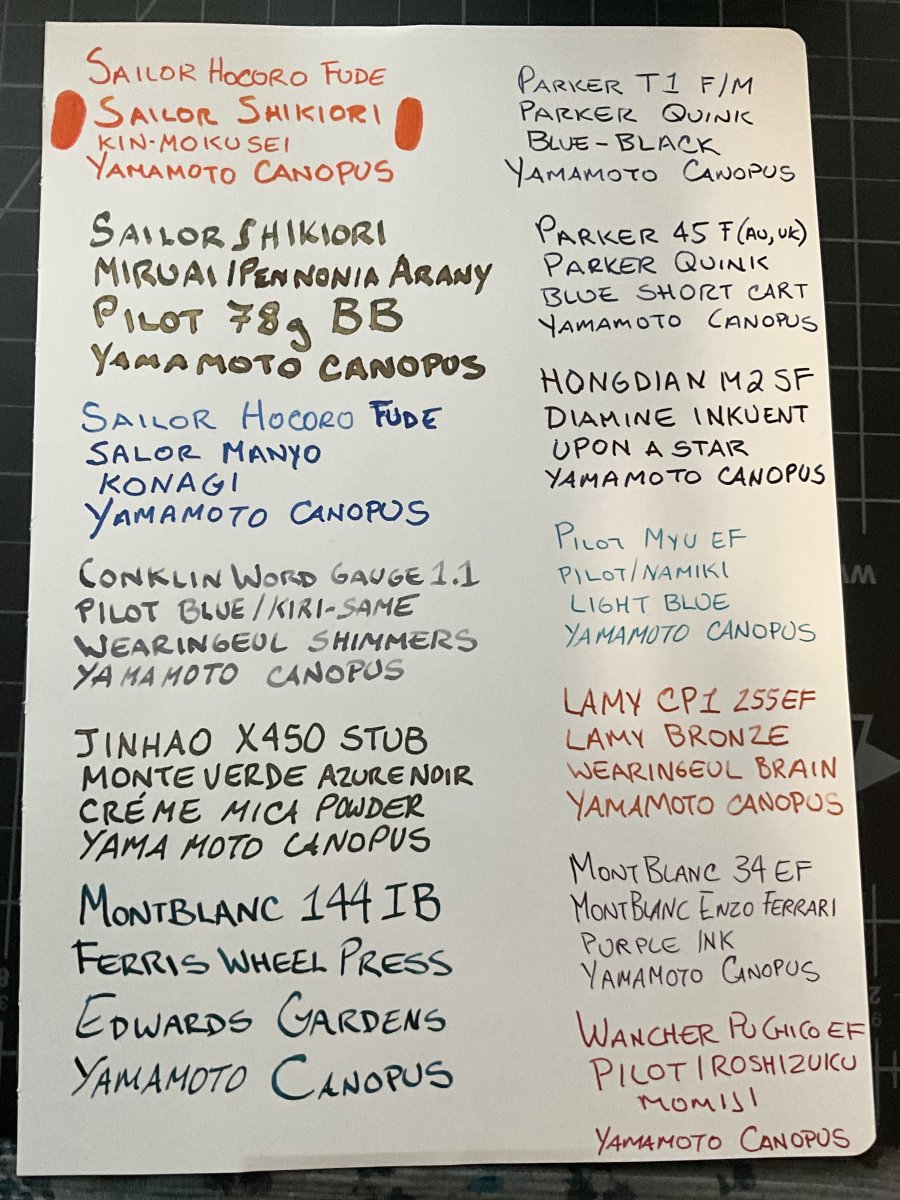 SAILOR HOCORO FUDE
SAILOR SHIKIORI
KIN-MOKUSEI
YAMAMOTO CANOPUS
SAILOR SHIKIORI
MIRUAI/PENNONIA ARANY
PILOT 78g BB
YAMAMOTO CANOPUS
SAILOR HOCORO FUDE
SALOR MANYO
KONAGI
YAMAMOTO CANOPUS
CONKLIN WORD GAUGE 1.1
PILOT BLUE//KIRI-SAME
WEARINGEUL SHIMMERS
YAMAMOTO CANOPUS
JINHAO X450 STUB
MONTEVERDE AZURE NOIR
CRÉME MICA POWDER
YAMAMOTO CANOPUS
MONTBLANC 144 IB
FERRIS WHEEL PRESS
EDWARDS GARDENS
YAMAMOTO CANOPUS
PARKER T1 F/M
PARKER QUINK
BLUE-BLACK
YAMAMOTO CANOPUS
PARKER 45 F(AU,UK)
PARKER QUINK
BLUE SHORT CART
YAMAMOTO CANOPUS
HONGDIAN M2 SF
DIAMINE INKUENT
UPON A STAR
YAMAMOTO CANOPUS
PILOT MYU EF
PILOT/NAMIKI
LIGHT BLUE
YAMAMOTO CANOPUS
LAMY CP1 255EF
LAMY BRONZE
WEARINGEUL BRAIN
YAMAMOTO CANOPUS
MONTBLANC 34 EF
MONTBLANC ENZO FERRARI
PURPLE INK
YAMAMOTO CANOPUS
WANCHER PUCHICO EF
PILOT IROSHIZUKU
MOMIJI
YAMAMOTO CANOPUS